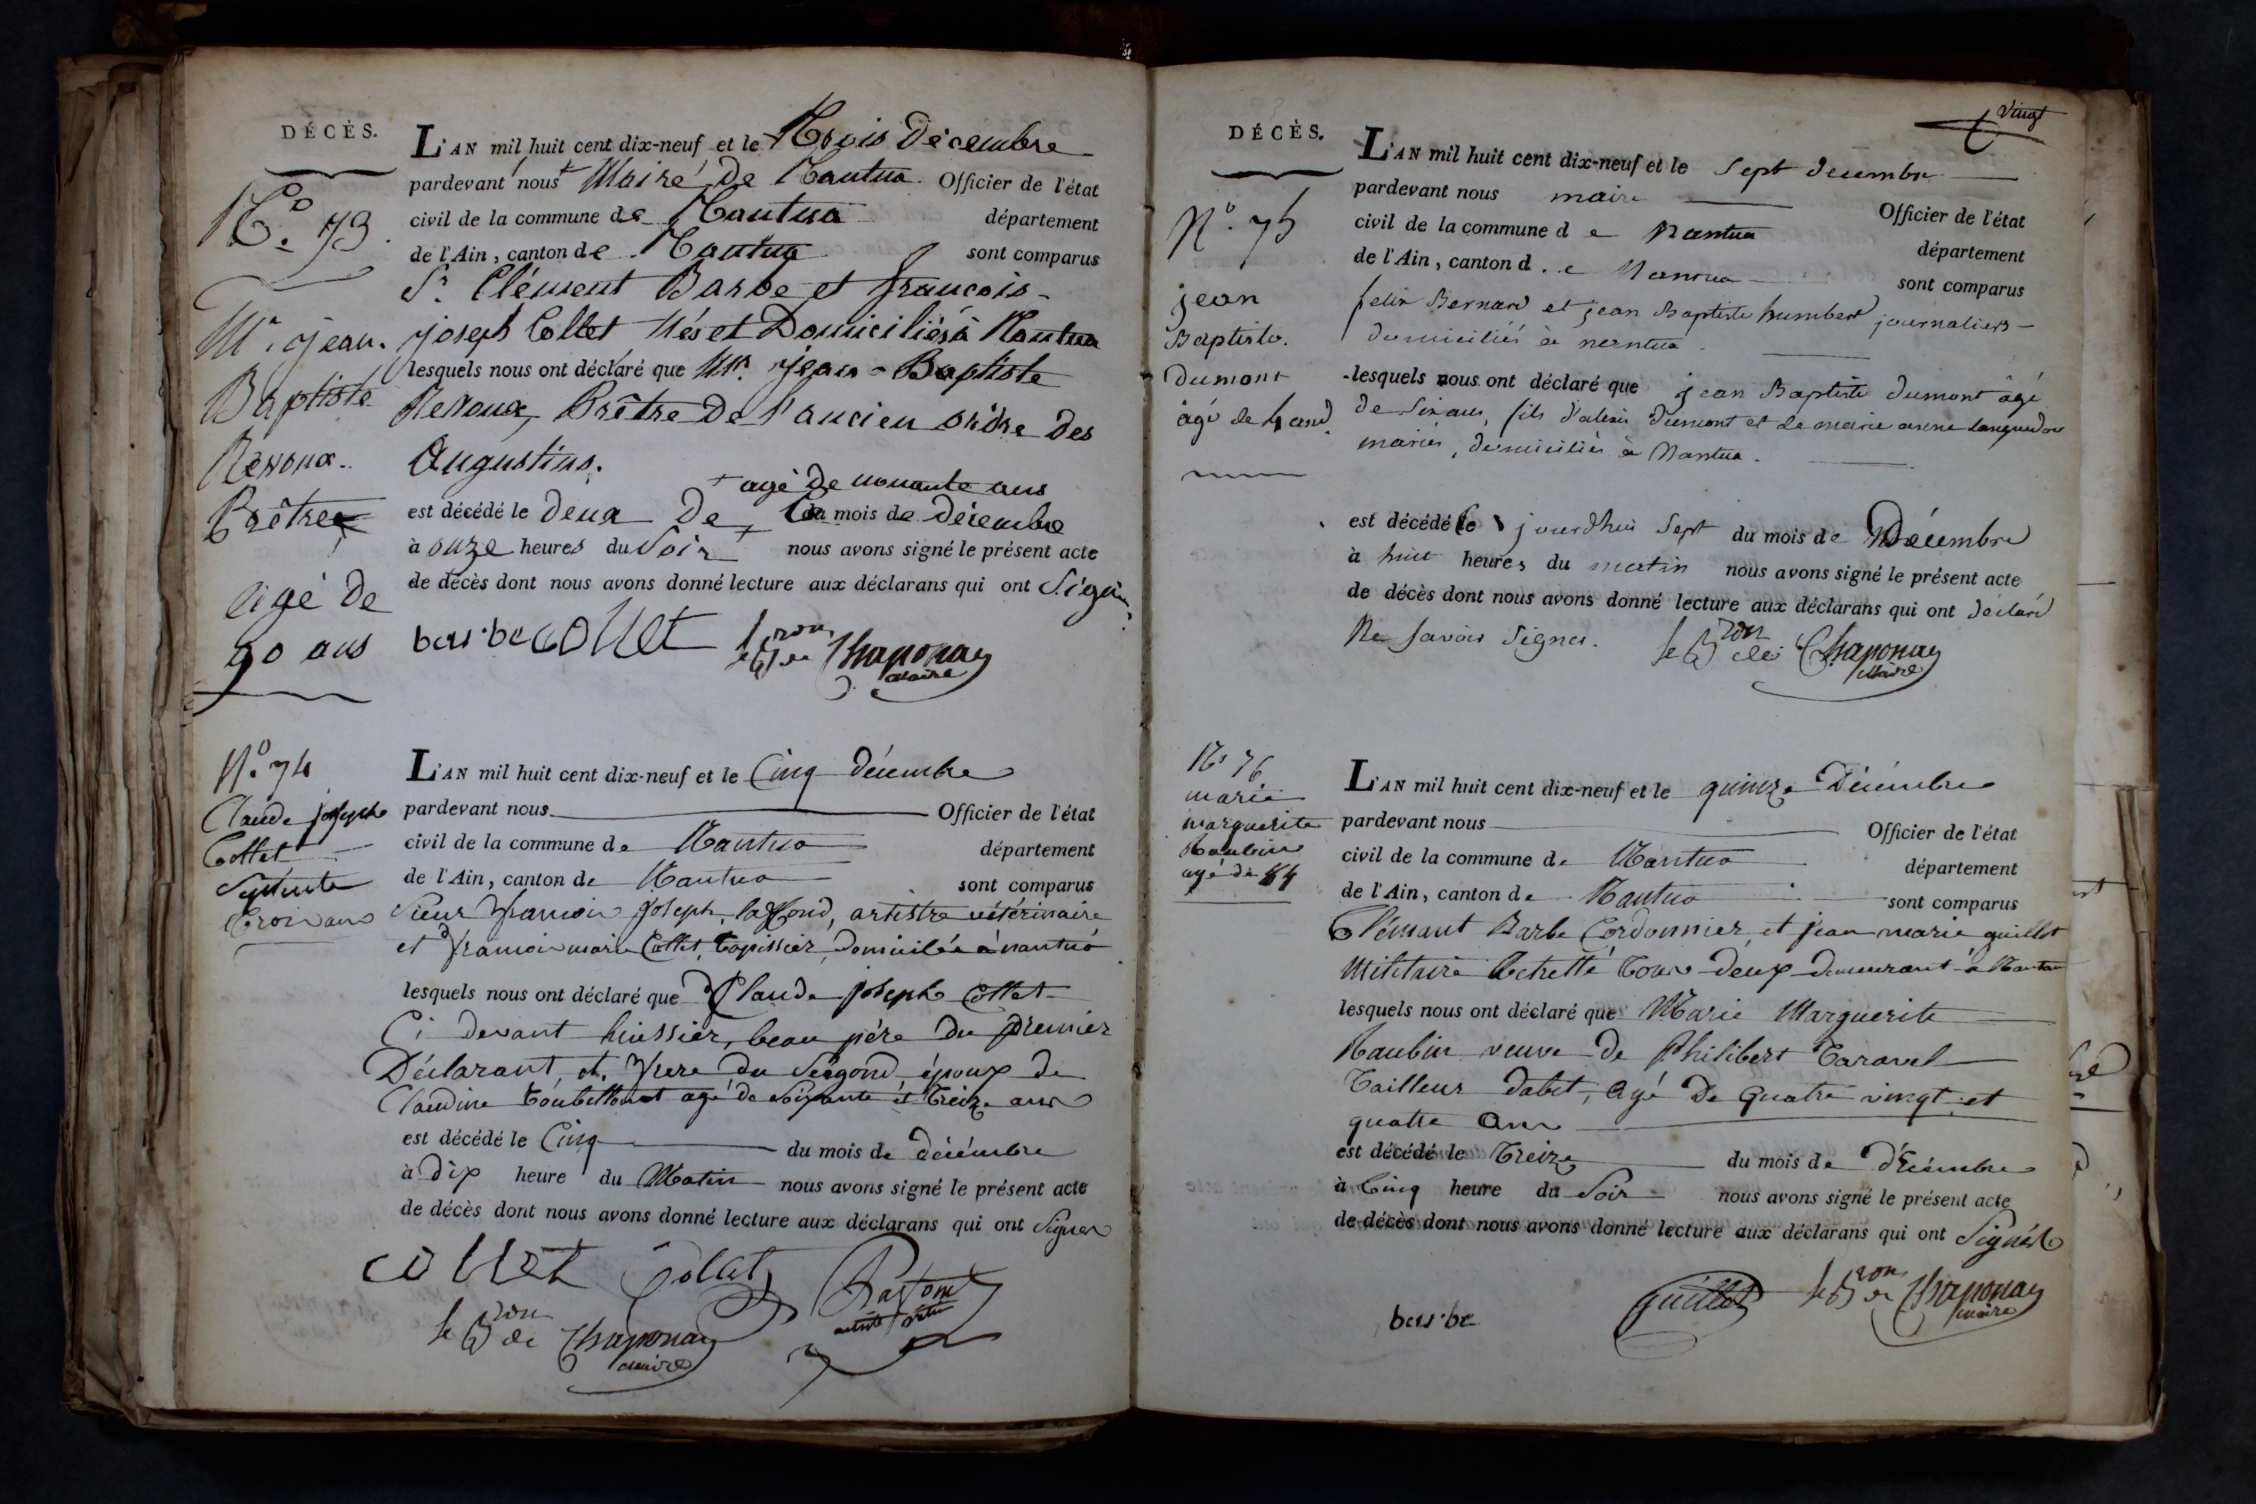 DÉCÈS.
N.° 73.
Mr. jean-
Baptiste
Revoux.
Prêtre
âgé de
90 ans
L'AN mil huit cent dix-neuf et le Trois Décembre
pardevant nous Maire de Nantua Officier de l'état
civil de la commune de Nantua département
de l'Ain, canton de Nantua sont comparus
Sr. Clément Barbe et françois-
joseph Collet nés et Domiciliés à Nantua
lesquels nous ont déclaré que Mr. jean-Baptiste
Revoux, Prêtre De l'ancien ordre Des
Augustins.
+ agé De nonante ans
est décédé le Deux De du mois de Décembre
à onze heures du Soir + nous avons signé le présent acte
de décès dont nous avons donné lecture aux déclarans qui ont Signé.
barbe collet le Bron de Chaponay
maire
N.° 74
Claude joseph
Collet
Septente
Trois ans
L'AN mil huit cent dix-neuf et le Cinq décembre
pardevant nous Officier de l'état
civil de la commune de Nantua département
de l'Ain, canton de Nantua sont comparus
Sieur françois joseph laffond, artistre vétérinaire
et françois marie Collet, tapissier, domiciliés à nantua
lesquels nous ont déclaré que Claude joseph Collet
Ci devant huissier, beau père du premier
Déclarant, et frere du Segond époux de
Claudine agé de Soixante et Treize ans
est décédé le Cinq du mois de décémbre
à dix heure du Matin nous avons signé le présent acte
de décès dont nous avons donné lecture aux déclarans qui ont Signer
collet Collet
le Bron de Chaponay
maire
Vingt
DÉCÈS.
N.° 75
jean
Baptiste
Dumont
âgé de
L'AN mil huit cent dix-neuf et le Sept decembre
pardevant nous maire Officier de l'état
civil de la commune de Nantua département
de l'Ain, canton de Nantua sont comparus
felix Bernard et jean Baptiste humbert journaliers
domiciliés à nantua.
lesquels nous ont déclaré que jean Baptiste dumont âgé
de Six ans, fils d'alexis dumont et de marie anne
mariés, domiciliés à Nantua.
est décédé Ce jourdhui Sept du mois de Décembre
à huit heures du matin nous avons signé le présent acte
de décès dont nous avons donné lecture aux déclarans qui ont déclaré
Ne Savoir Signer. le Bron de Chaponay
Maire
N° 76
marie
marguerite
Naubin
agé de 84
L'AN mil huit cent dix-neuf et le quinze Décémbre
pardevant nous Officier de l'état
civil de la commune de Nantua département
de l'Ain, canton de Nantua sont comparus
Clémant Barbe Cordonnier, et jean marie guillot
Militaire Retretté tous deux demeurant à Nantua
lesquels nous ont déclaré que Marie Marguerite
Naubin veuve de Philibert Taravel
Tailleur dabit, agé De quatre vingt et
quatre ans
est décédé le Treize du mois de décémbre
à Cinq heure du Soir nous avons signé le présent acte
de décès dont nous avons donné lecture aux déclarans qui ont Signés
barbe guillot le Bron de Chaponay
maire